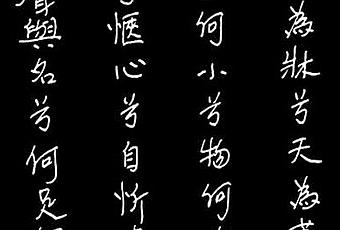 為牀兮天為
何小兮物何
愜心兮自忻
與名兮何足